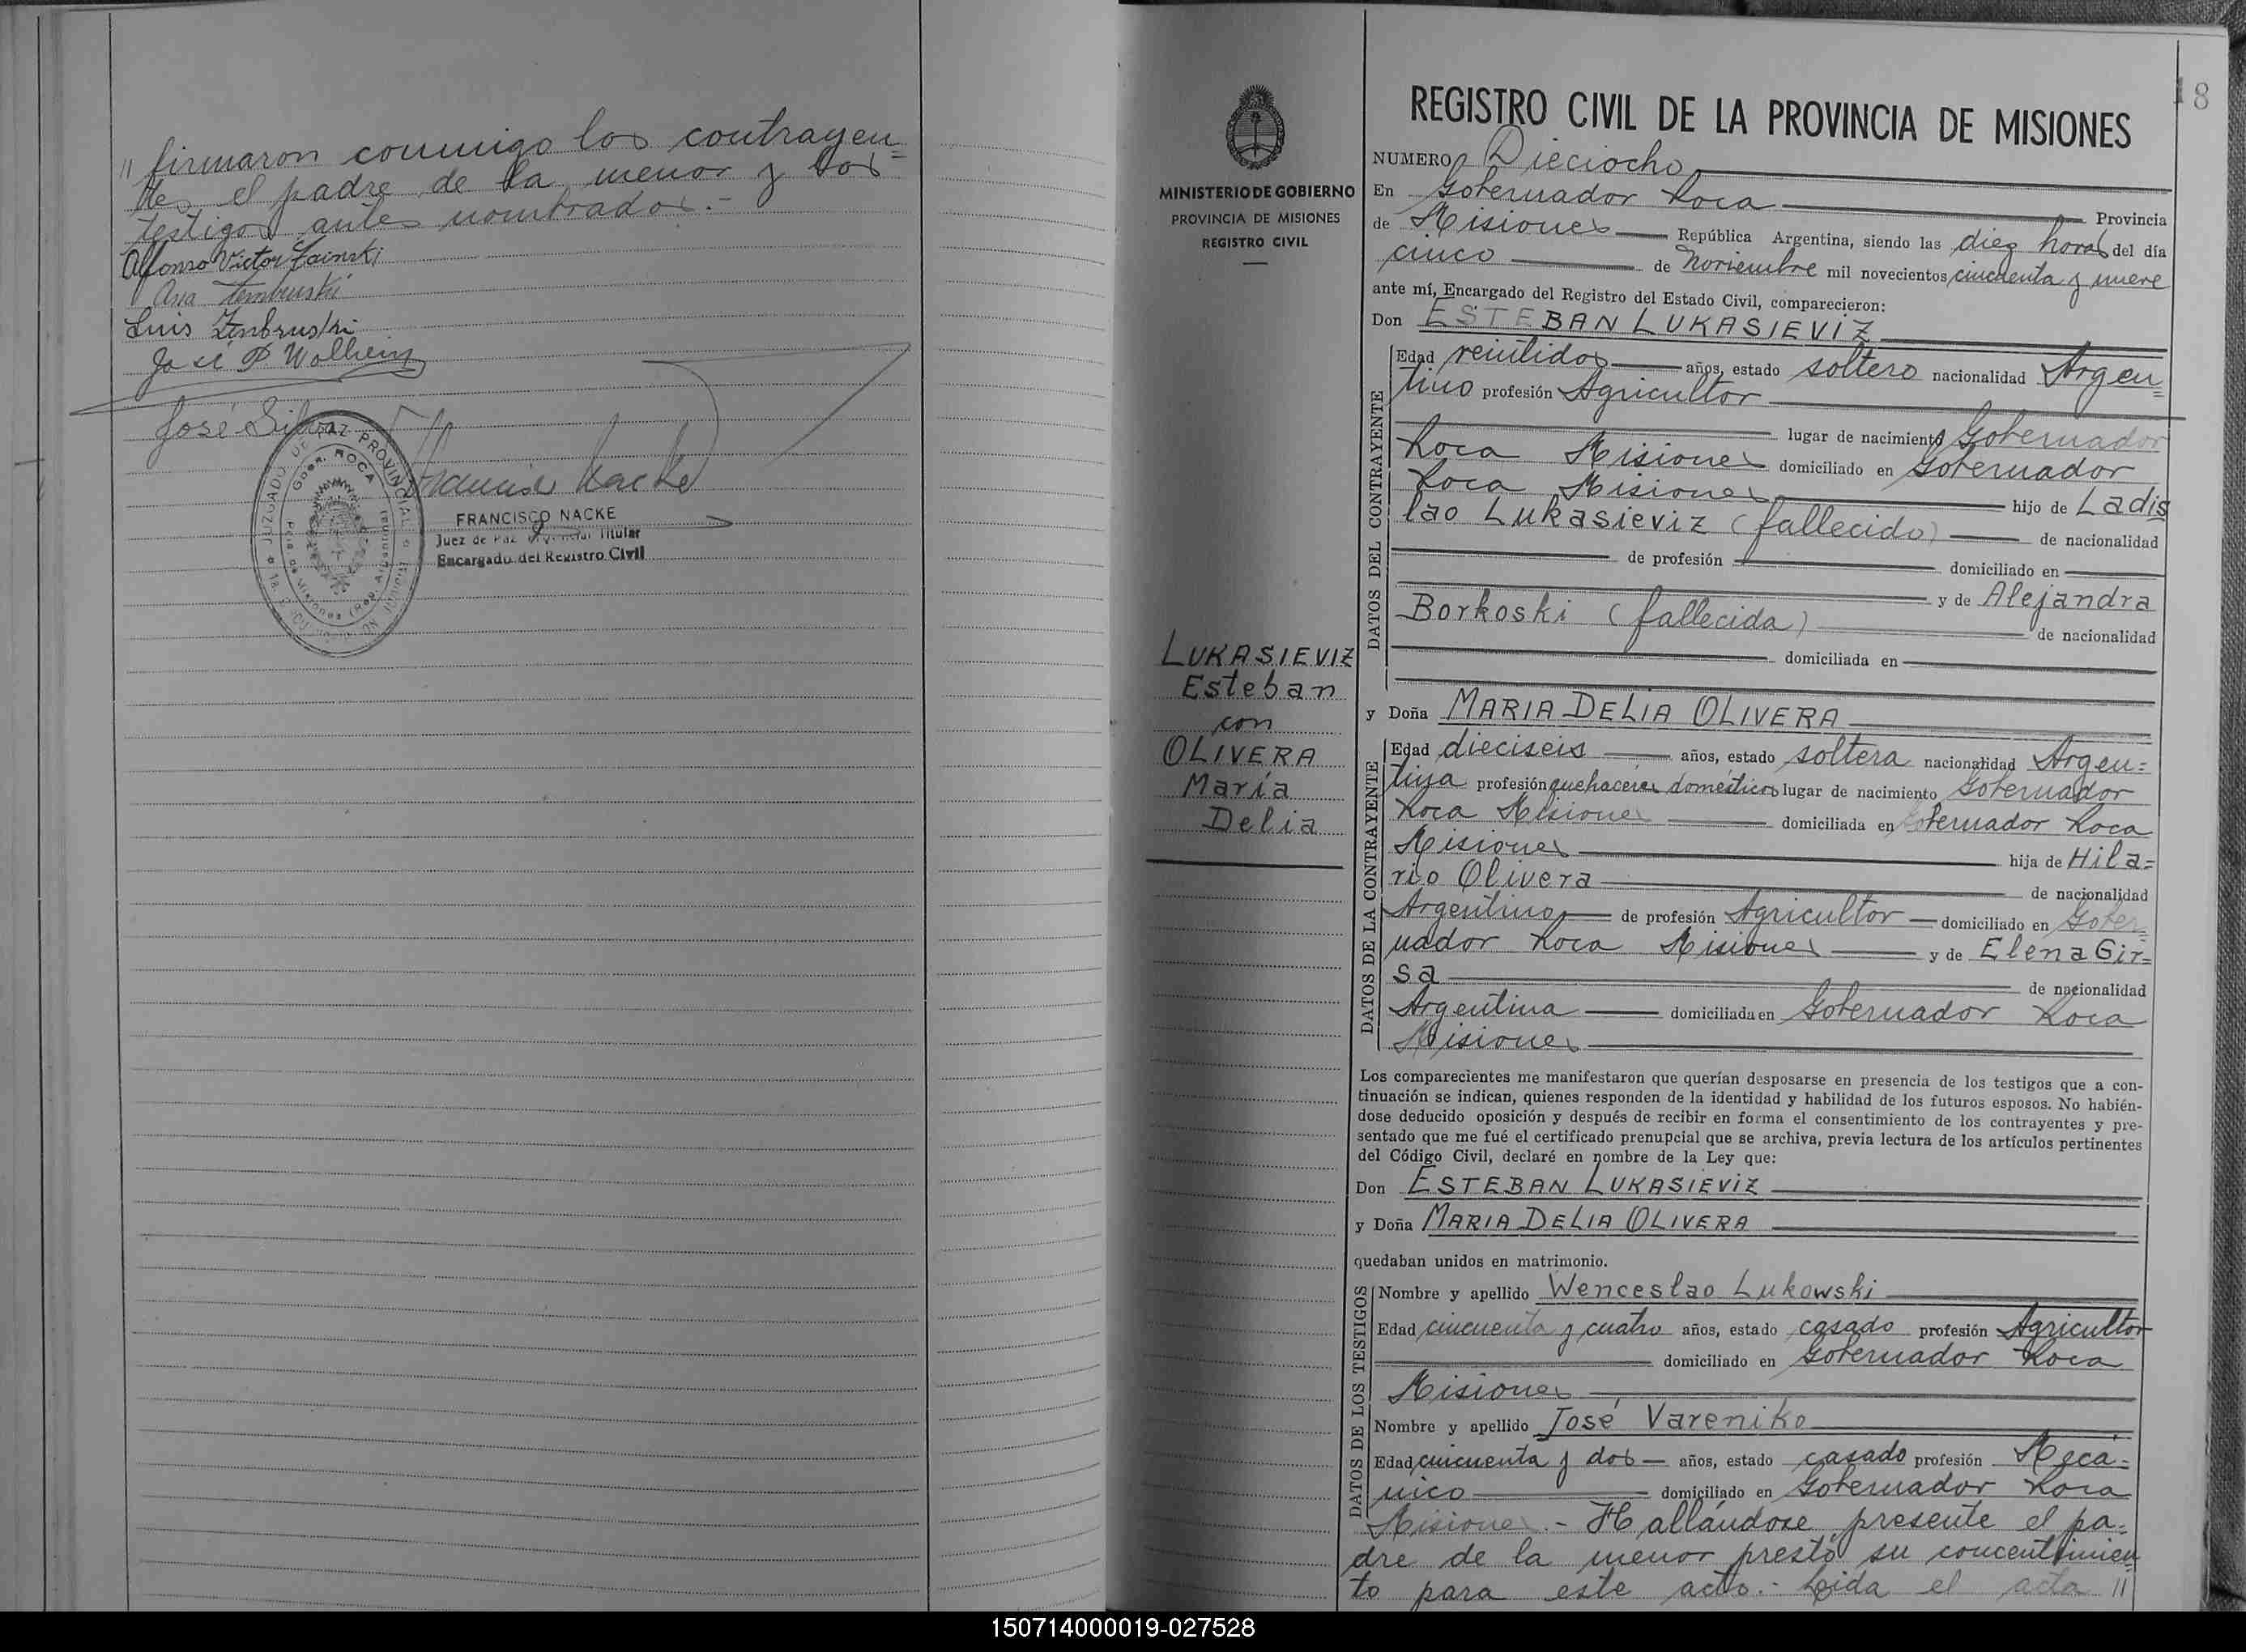 " firmaron conmigo los contrayen=
tes el padre de la menor y los
testigos antes nombrados.-
Alfonso Victor Zainski
Ana Tembruski
Luis Zenbruski
José P Wolhein
José Silva
JUZGADO DE PAZ PROVINCIAL
Gdor. ROCA
Pcia de Misiones (Rep. Argentina)
Francisco Nacke
FRANCISCO NACKE
Juez de Paz Titular
Encargado del Registro Civil
18
MINISTERIO DE GOBIERNO
PROVINCIA DE MISIONES
REGISTRO CIVIL
LUKASIEVIZ
Esteban
con
OLIVERA
María
Delia
REGISTRO CIVIL DE LA PROVINCIA DE MISIONES
NUMERO Dieciocho
En Gobernador Roca Provincia
de Misiones República Argentina, siendo las diez horas del día
cinco de Noviembre mil novecientos cincuenta y nueve
ante mí, Encargado del Registro del Estado Civil, comparecieron:
Don ESTEBAN LUKASIEVIZ
DATOS DEL CONTRAYENTE
Edad veintidos años, estado soltero nacionalidad Argen=
tino profesión Agricultor
lugar de nacimiento Gobernador
Roca Misiones domiciliado en Gobernador
Roca Misiones hijo de Ladis
lao Lukasieviz (fallecido) de nacionalidad
de profesión domiciliado en
y de Alejandra
Borkoski (fallecida) de nacionalidad
domiciliada en
y Doña MARIA DELIA OLIVERA
DATOS DE LA CONTRAYENTE
Edad dieciseis años, estado soltera nacionalidad Argen=
tina profesión quehaceres domésticos lugar de nacimiento Gobernador
Roca Misiones domiciliada en Gobernador Roca
Misiones hija de Hila=
rio Olivera de nacionalidad
Argentino de profesión Agricultor domiciliado en Gober=
nador Roca Misiones y de Elena Gir=
sa de nacionalidad
Argentina domiciliada en Gobernador Roca
Misiones
Los comparecientes me manifestaron que querían desposarse en presencia de los testigos que a con-
tinuación se indican, quienes responden de la identidad y habilidad de los futuros esposos. No habién-
dose deducido oposición y después de recibir en forma el consentimiento de los contrayentes y pre-
sentado que me fué el certificado prenupcial que se archiva, previa lectura de los artículos pertinentes
del Código Civil, declaré en nombre de la Ley que:
Don ESTEBAN LUKASIEVIZ
y Doña MARIA DELIA OLIVERA
quedaban unidos en matrimonio.
DATOS DE LOS TESTIGOS
Nombre y apellido Wenceslao Lukowski
Edad cincuenta y cuatro años, estado casado profesión Agricultor
domiciliado en Gobernador Roca
Misiones
Nombre y apellido José Vareniko
Edad cincuenta y dos años, estado casado profesión Mecá=
nico domiciliado en Gobernador Roca
Misiones.- Hallándose presente el pa=
dre de la menor prestó su concentimien=
to para este acto.- Leida el acta "
150714000019-027528